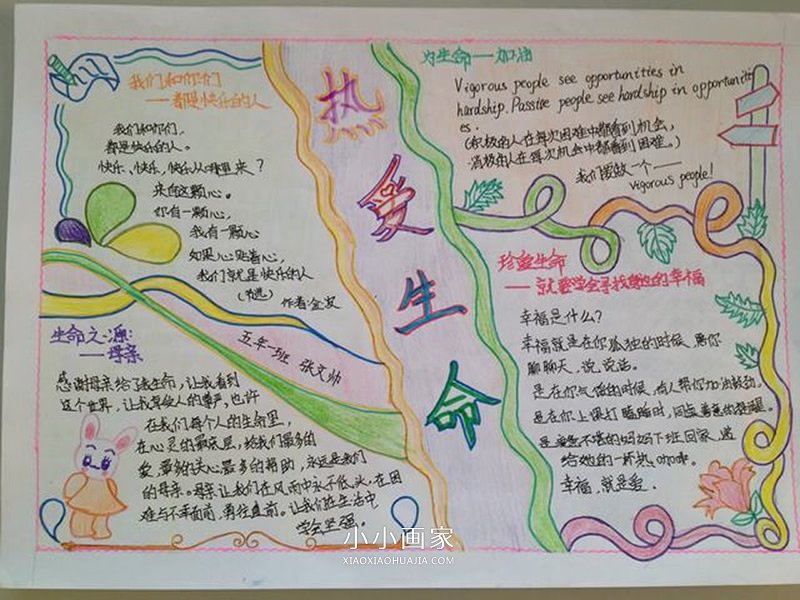 我们和你们
——都是快乐的人
我们和你们，
都是快乐的人。
快乐、快乐，快乐从哪里来？
来自这颗心。
你有一颗心，
我有一颗心
如果心贴着心，
我们就是快乐的人
（节选） 作者：金波
生命之源：
——母亲
五年一班 张文帅
感谢母亲给了我生命，让我看到
这个世界，让我享受人的尊严，也许
在我们每个人的生命里，
在心灵的最底层，给我们最多的
爱，最多的关心，最多的帮助，永远是我们
的母亲。母亲让我们在风雨中永不低头，在困
难与不幸面前，勇往直前。让我们在生活中
学会坚强。
热
爱
生
命
为生命——加油
Vigorous people see opportunities in
hardship. Passive people see hardship in opportuniti
es.
（积极的人在每次困难中都看到机会，
消极的人在每次机会中都看到困难。）
我们要做一个——
vigorous people!
珍爱生命
——就要学会寻找身边的幸福
幸福是什么？
幸福就是在你孤独的时候，陪你
聊聊天，说说话。
是在你气馁的时候，有人帮你加油鼓劲。
是在你上课打瞌睡时，同桌善意的提醒。
是疲惫不堪的妈妈下班回家，送
给她的一杯热
幸福，就是爱。
小小画家
XIAOXIAOHUAJIA.COM